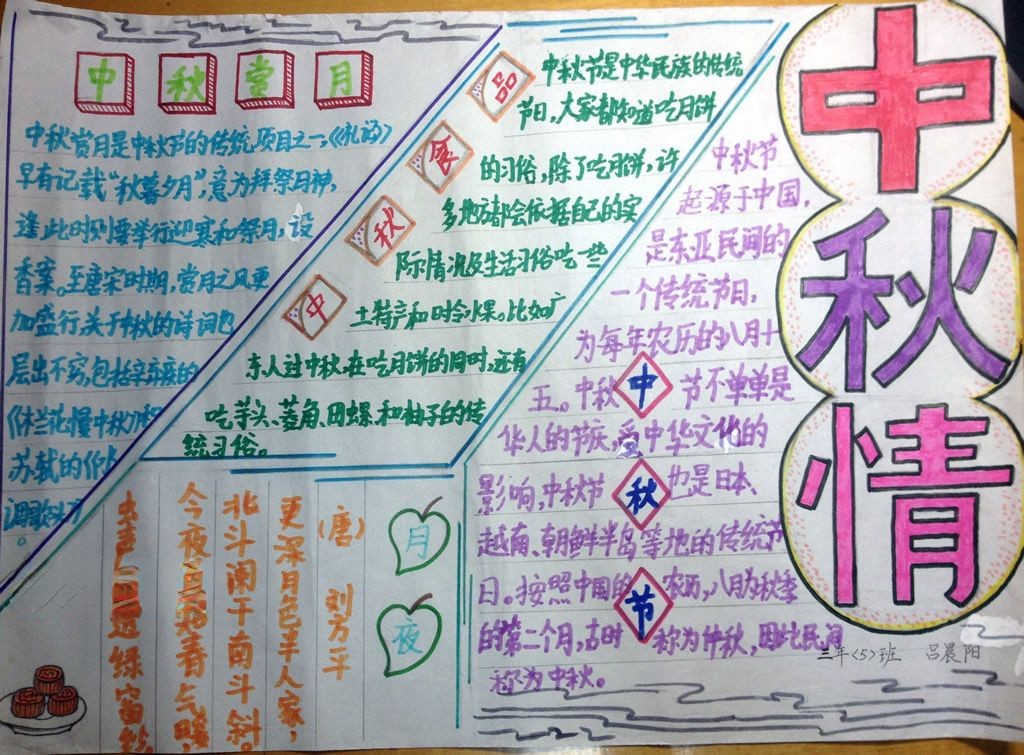 中秋赏月
中秋赏月是中秋节的传统项目之一,《礼记》
早有记载“秋暮夕月”,意为拜祭月神,
逢此时则要举行迎寒和祭月,设
香案。王唐宋时期,赏月之风更
加盛行,关于中秋的诗词也
层出不穷,包括辛弃疾的
《木兰花慢中秋》和
苏轼的《水
调歌头》
。
中秋食品
中秋节是中华民族的传统
节日,大家都知道吃月饼
的习俗,除了吃月饼,许
多地方都会依据自己的实
际情况及生活习俗吃一些
土特产和时令水果。比如广
东人过中秋,在吃月饼的同时,还有
吃芋头、菱角、田螺、和柚子的传
统习俗。
中秋情
中秋节
起源于中国,
是东亚民间的
一个传统节日,
为每年农历的八月十
五。中秋 节不单单是
华人的节庆,受中华文化的
影响,中秋节 也是日本、
越南、朝鲜半岛等地的传统节
日。按照中国的 农历,八月为秋季
的第二个月,古时 称为仲秋,因此民间
称为中秋。
中
秋
节
三年〈5〉班 吕晨阳
月夜
(唐) 刘方平
更深月色半人家,
北斗阑干南斗斜。
今夜 春气暖,
虫声 绿窗纱